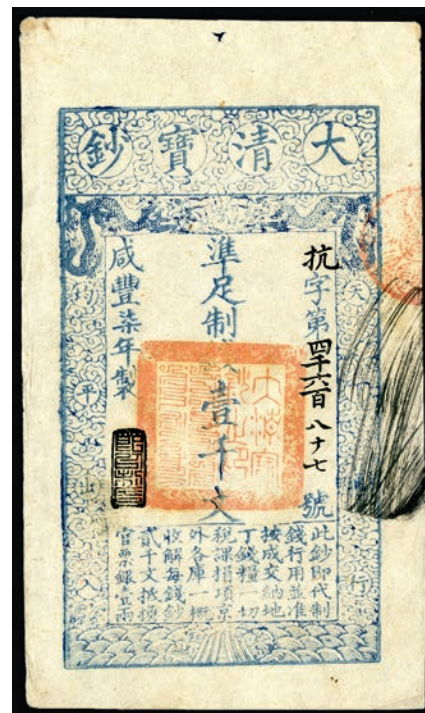 大清寶鈔
天下通行
抗字第四千六百八十七號
準足制錢壹千文
咸豐柒年製
均平出入
此鈔即代制
錢行用並准
按成交納地
丁錢糧一切
稅課捐項京
外各庫一概
收解每錢鈔
貳千文抵換
官票銀壹兩